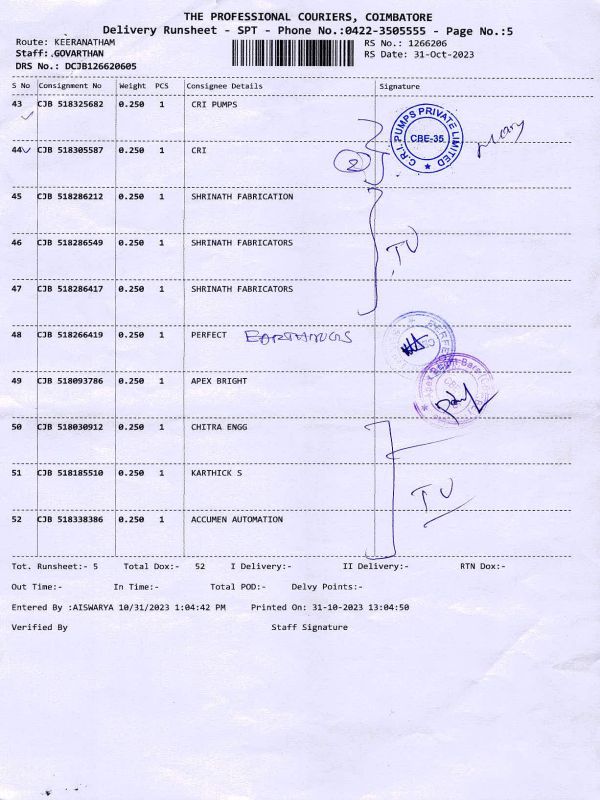 THE PROFESSIONAL COURIERS, COIMBATORE
Delivery Runsheet - SPT - Phone No.:0422-3505555 - Page No.:5
Route: KEERANATHAM RS No.: 1266206
Staff: GOVARTHAN RS Date: 31-Oct-2023
DRS No.: DCJB126620605
S No Consignment No Weight PCS Consignee Details Signature
43 CJB 518325682 0.250 1 CRI PUMPS
C.R.I. PUMPS PRIVATE LIMITED
CBE-35
44 CJB 518305587 0.250 1 CRI
2
45 CJB 518286212 0.250 1 SHRINATH FABRICATION
46 CJB 518286549 0.250 1 SHRINATH FABRICATORS
47 CJB 518286417 0.250 1 SHRINATH FABRICATORS
48 CJB 518266419 0.250 1 PERFECT
49 CJB 518093786 0.250 1 APEX BRIGHT
50 CJB 518030912 0.250 1 CHITRA ENGG
51 CJB 518185510 0.250 1 KARTHICK S
52 CJB 518338386 0.250 1 ACCUMEN AUTOMATION
Tot. Runsheet:- 5 Total Dox:- 52 I Delivery:- II Delivery:- RTN Dox:-
Out Time:- In Time:- Total POD:- Delvy Points:-
Entered By :AISWARYA 10/31/2023 1:04:42 PM Printed On: 31-10-2023 13:04:50
Verified By Staff Signature